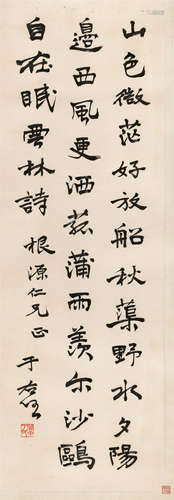 山色微茫好放船秋蕖野水夕陽
邊西風更洒菰蒲雨羨尔沙鷗
自在眠雲林詩
根源仁兄正
于右任